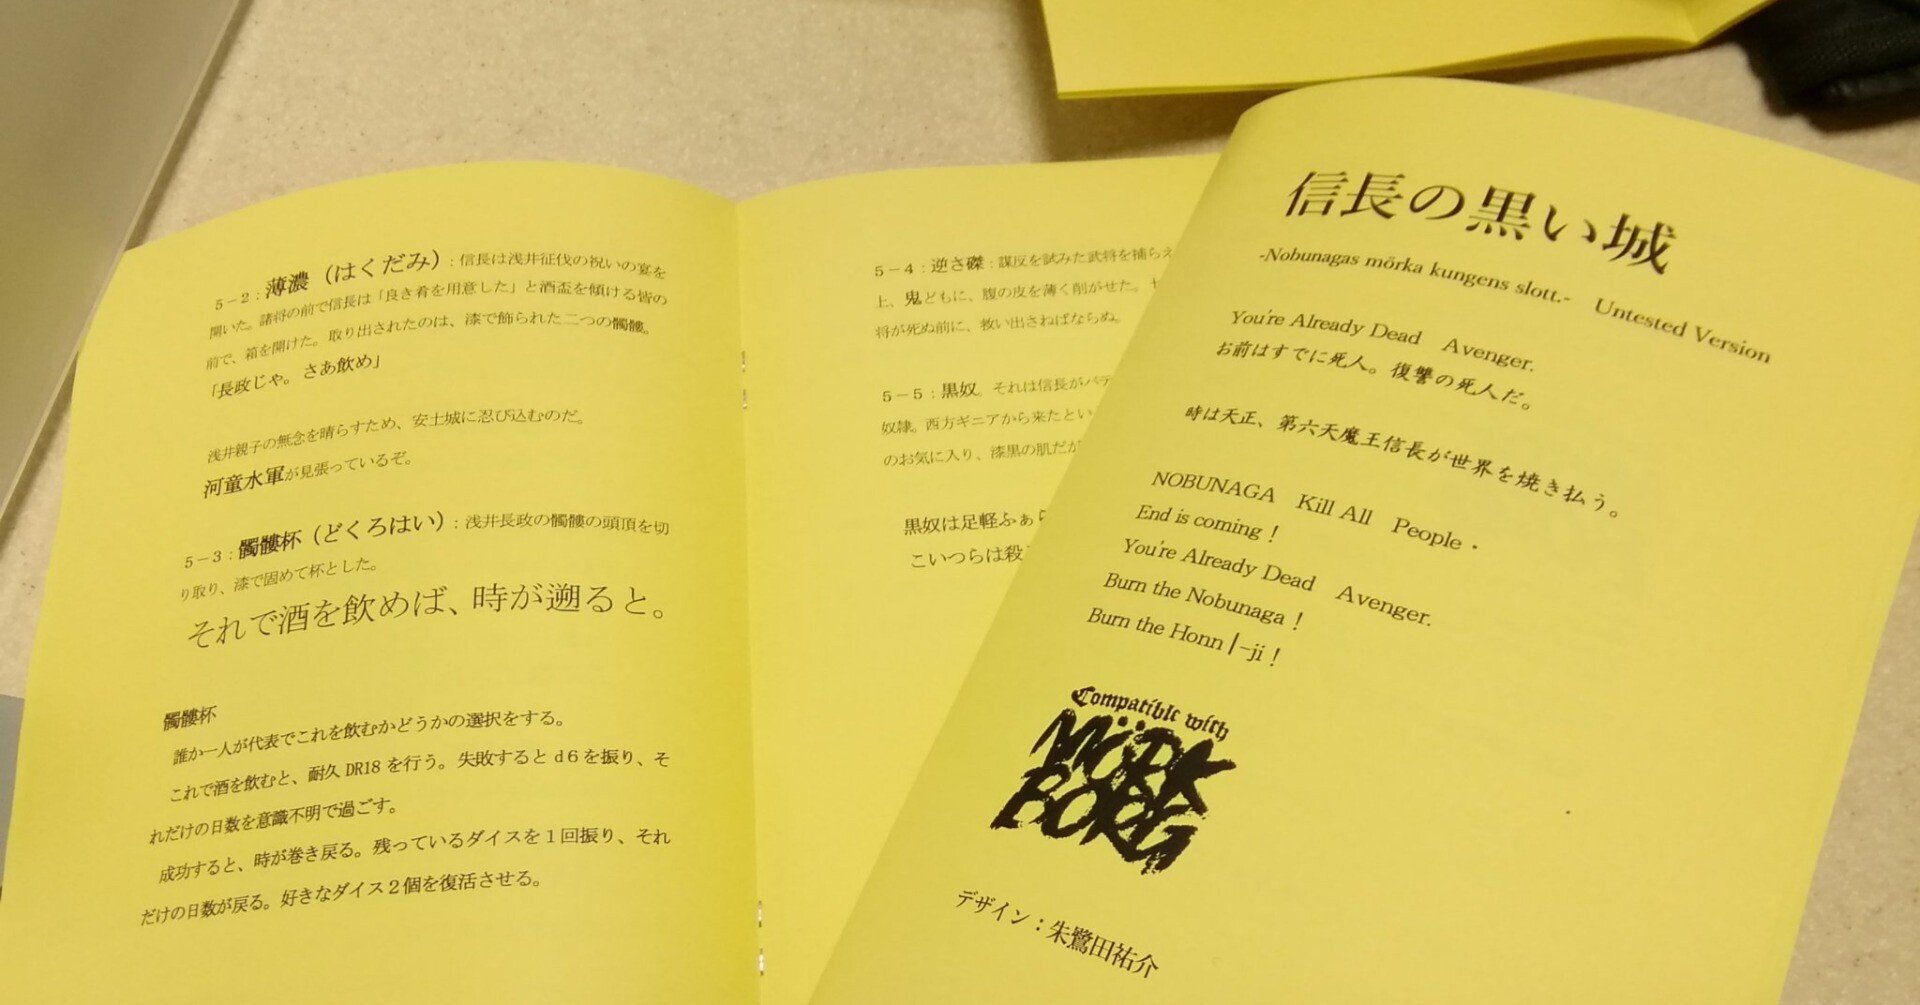 5－2：薄濃（はくだみ）：信長は浅井征伐の祝いの宴を
開いた。諸将の前で信長は「良き肴を用意した」と酒盃を傾ける皆の
前で、箱を開けた。取り出されたのは、漆で飾られた二つの髑髏。
「長政じゃ。さあ飲め」
浅井親子の無念を晴らすため、安土城に忍び込むのだ。
河童水軍が見張っているぞ。
5－3：髑髏杯（どくろはい）：浅井長政の髑髏の頭頂を切
り取り、漆で固めて杯とした。
それで酒を飲めば、時が遡ると。
髑髏杯
誰か一人が代表でこれを飲むかどうかの選択をする。
これで酒を飲むと、耐久 DR18 を行う。失敗すると d6 を振り、そ
れだけの日数を意識不明で過ごす。
成功すると、時が巻き戻る。残っているダイスを1回振り、それ
だけの日数が戻る。好きなダイス2個を復活させる。
5－4：逆さ磔：謀反を試みた武将を捕らえ
上、鬼どもに、腹の皮を薄く削がせた。
将が死ぬ前に、救い出さねばならぬ。
5－5：黒奴。それは信長がバテ
奴隷。西方ギニアから来たとい
のお気に入り、漆黒の肌だが
黒奴は足軽ふぁ
こいつらは殺
信長の黒い城
-Nobunagas mörka kungens slott.-　Untested Version
You're Already Dead　Avenger.
お前はすでに死人。復讐の死人だ。
時は天正、第六天魔王信長が世界を焼き払う。
NOBUNAGA　Kill All　People・
End is coming！
You're Already Dead　Avenger.
Burn the Nobunaga！
Burn the Honn|-ji！
Compatible with
MÖRK
BORG
デザイン：朱鷺田祐介